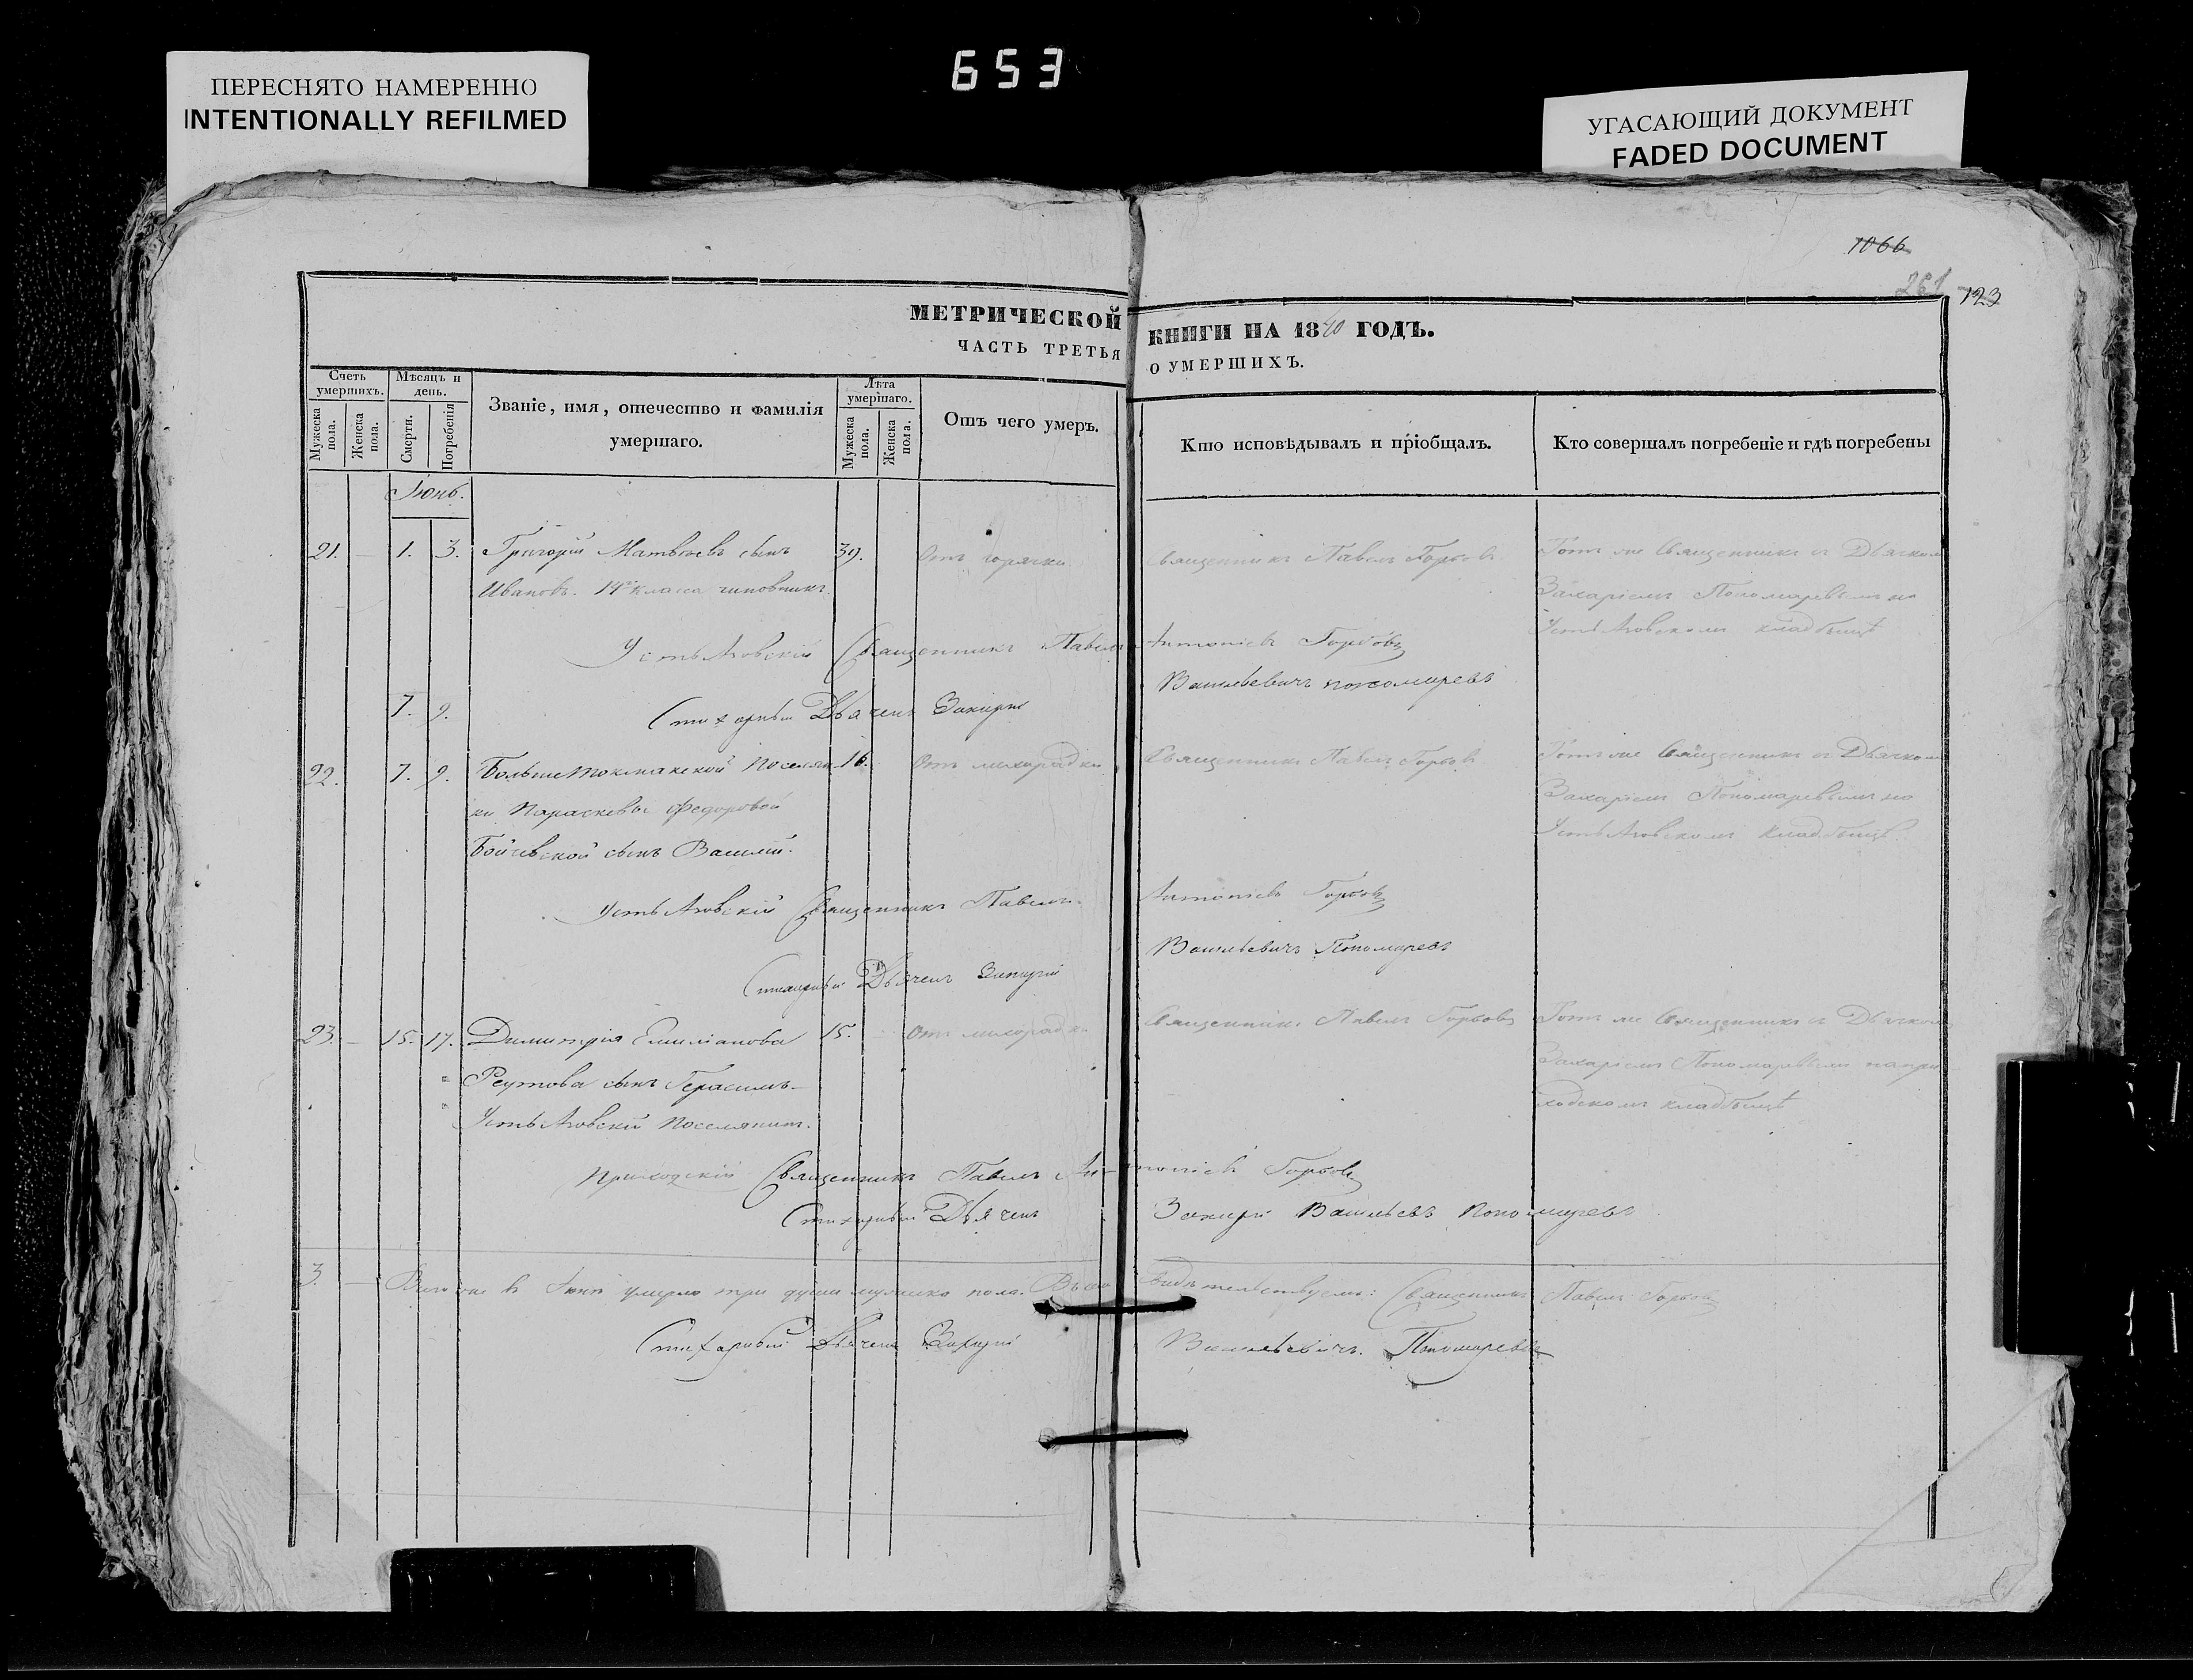 653
ПЕРЕСНЯТО НАМЕРЕННО
INTENTIONALLY REFILMED
УГАСАЮЩИЙ ДОКУМЕНТ
FADED DOCUMENT
1066
261
123
МЕТРИЧЕСКОЙ КНИГИ НА 1840 ГОДЪ.
ЧАСТЬ ТРЕТЬЯ О УМЕРШИХЪ.
Счетъ умершихъ.
Мужеска пола.
Женска пола.
Мѣсяцъ и день.
Смерти.
Погребенія
Званіе, имя, отечество и фамилія умершаго.
Лѣта умершаго.
Мужеска пола.
Женска пола.
Отъ чего умеръ.
Кто исповѣдывалъ и пріобщалъ.
Кто совершалъ погребеніе и гдѣ погребены
Іюнь.
21. — 1. 3. Григорій Матвѣевъ сынъ 39. Отъ горячки Священникъ Павелъ Горбовъ Тотъ же Священникъ съ Дьячкомъ
Ивановъ. 14го класса чиновникъ. Захаріемъ Пономаревымъ на
Усть Азовскомъ кладбищѣ
Усть Азовскій Священникъ Павелъ Антоніевъ Горбовъ
7. 9. Стихарный Дьячекъ Захарій Васильевичъ Пономаревъ
22. 7. 9. Большетокмакской поселян 16. Отъ лихорадки Священникъ Павелъ Горбовъ Тотъ же Священникъ съ Дьячкомъ
ки Параскевы Федоровой Захаріемъ Пономаревымъ на
Бойчевской сынъ Василій. Усть Азовскомъ кладбищѣ.
Усть Азовскій Священникъ Павелъ Антоніевъ Горбовъ
Стихарный Дьячекъ Захарій Васильевичъ Пономаревъ
23. — 15. 17. Димитрія Емиліанова 15. Отъ лихорадки Священникъ Павелъ Горбовъ Тотъ же Священникъ съ Дьячкомъ
Реутова сынъ Герасимъ Захаріемъ Пономаревымъ на при
Усть Азовскій поселянинъ. ходскомъ кладбищѣ
Приходскій Священникъ Павелъ Антоніевъ Горбовъ
Стихарный Дьячекъ Захарій Васильевъ Пономаревъ
3. — въ Іюнѣ умерло три души мужеска пола. свидѣтельствуемъ: Священникъ Павелъ Горбовъ
Стихарный Дьячекъ Захарій Васильевичъ Пономаревъ